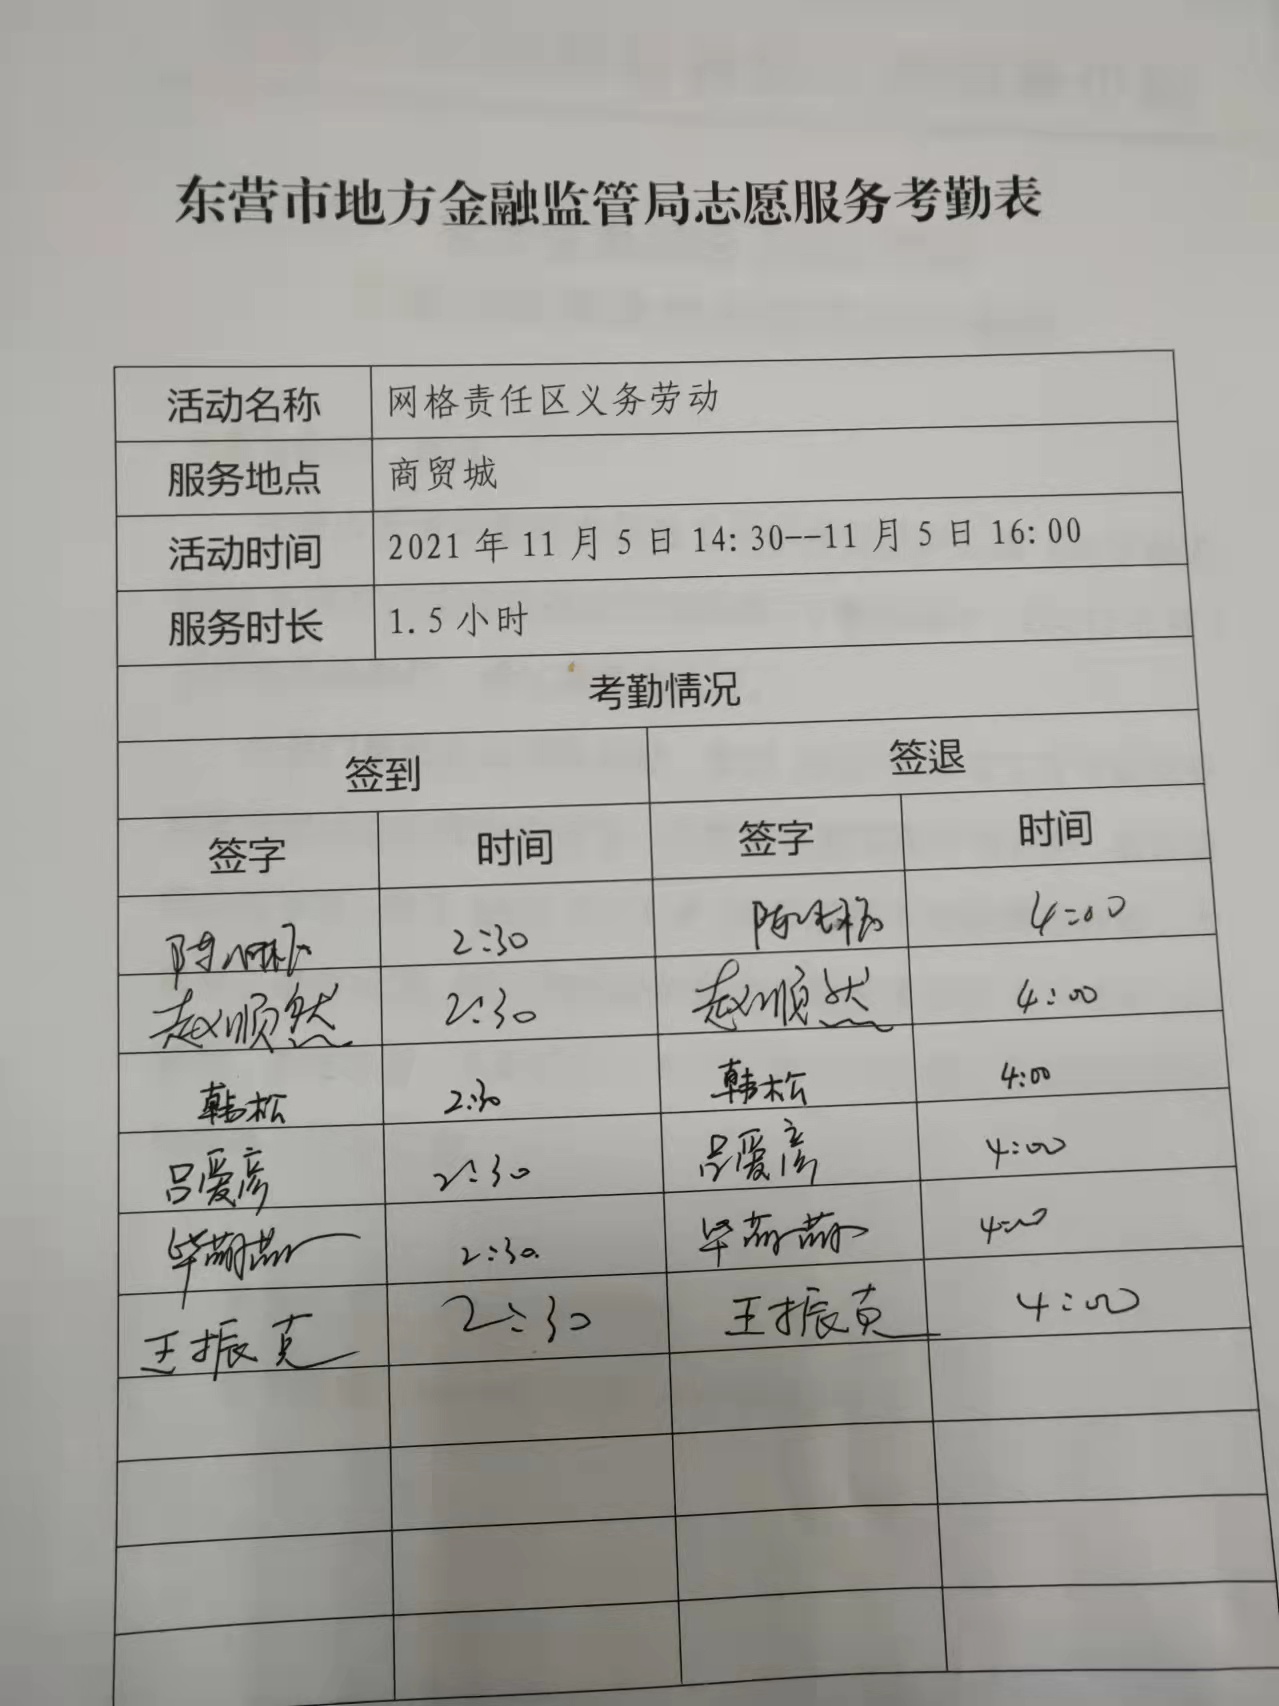 东营市地方金融监管局志愿服务考勤表
活动名称 网格责任区义务劳动
服务地点 商贸城
活动时间 2021年11月5日14:30--11月5日16:00
服务时长 1.5小时
考勤情况
签到 签退
签字 时间 签字 时间
2:30 4:00
赵顺然 2:30 赵顺然 4:00
韩松 2:30 韩松 4:00
吕爱彦 2:30 吕爱彦 4:00
毕 2:30 毕 4:00
王振克 2:30 王振克 4:00